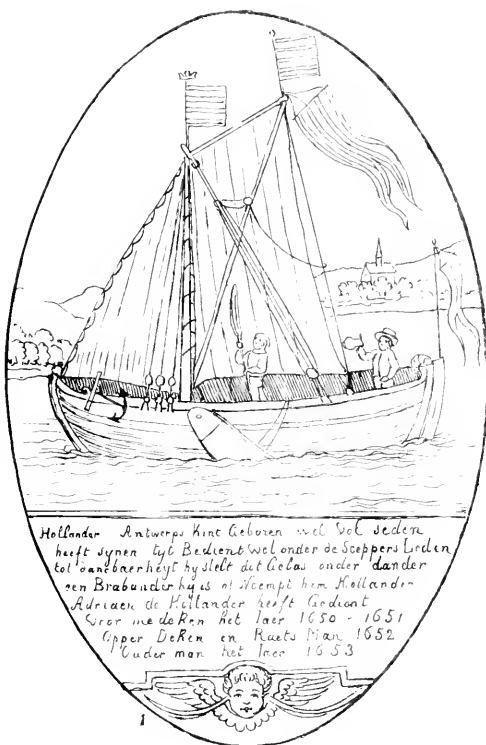 Hollander Antwerps Kint Geboren wel vol seden
heeft synen tyt Bedient wel onder de Sceppers Leden
tot danckbaerheyt hy stelt det Gelas onder dander
een Brabander hy is al Noempt hem Hollander
Adriaen de Hollander heeft Gedient
Voor mede Deken het Jaer 1650 - 1651
Opper Deken en Raets Man 1652
Ouder man het Jaer 1653
1